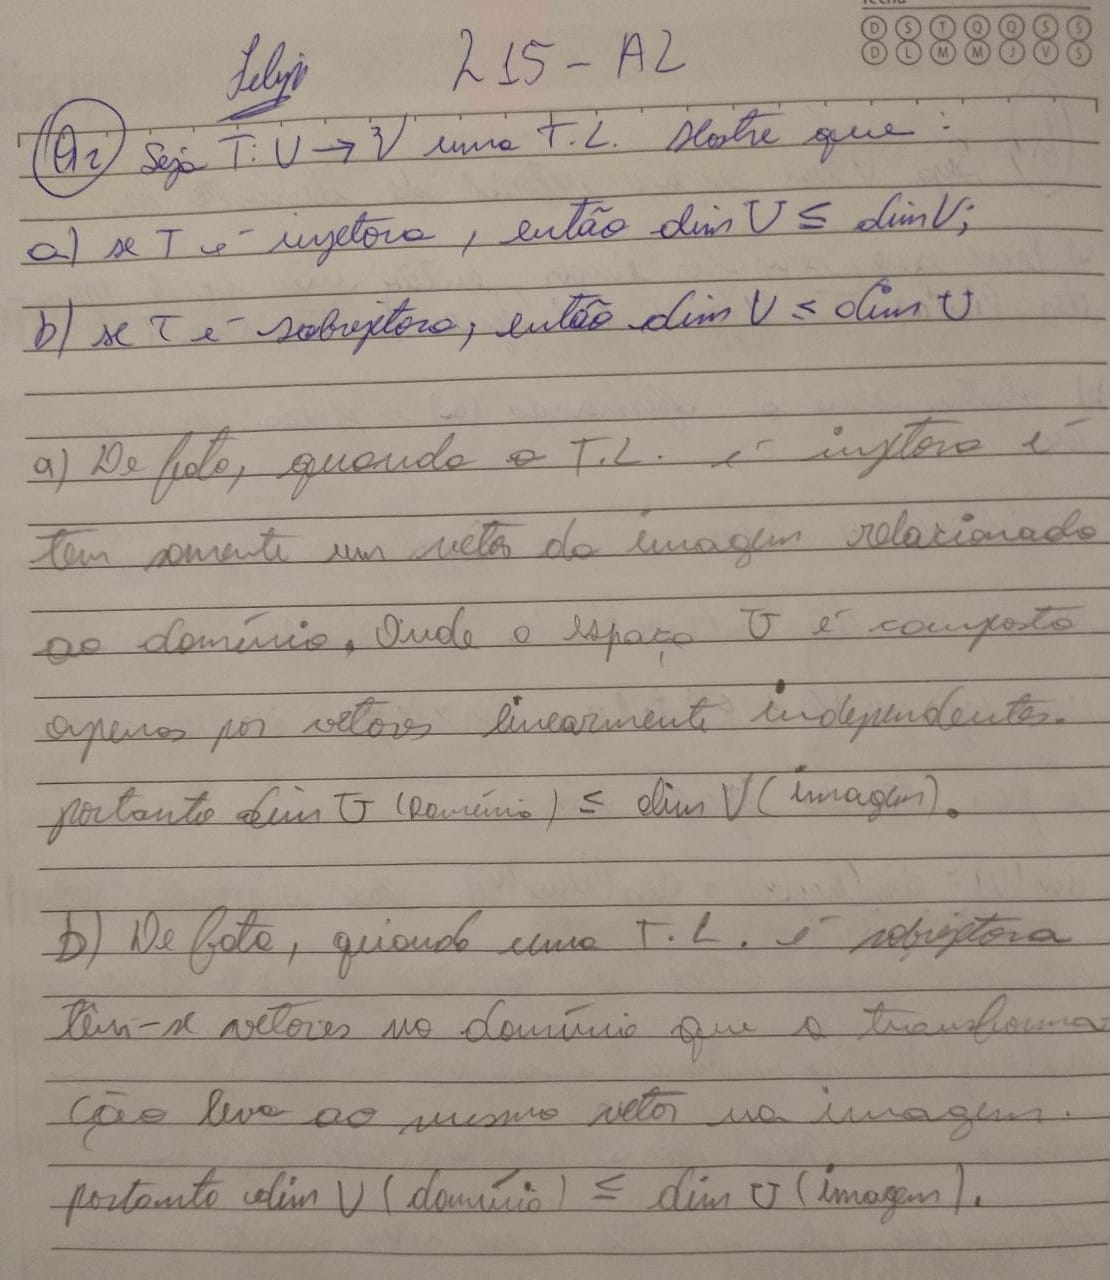 D S T Q Q S S
D L M M J V S
Felipe L15-A2
Q2 Seja T: U → V uma T.L. Mostre que:
a) se T é injetora, então dim U ≤ dim V;
b) se T é sobrejetora, então dim V ≤ dim U
a) De fato, quando a T.L. é injetora é
tem somente um vetor da imagem relacionado
ao domínio. Onde o espaço U é composto
apenas por vetores linearmente independentes.
portanto dim U (Domínio) ≤ dim V (imagem).
b) De fato, quando uma T.L. é sobrejetora
têm-se vetores no domínio que a transforma
ção leva ao mesmo vetor na imagem.
portanto dim V (domínio) ≤ dim U (imagem).